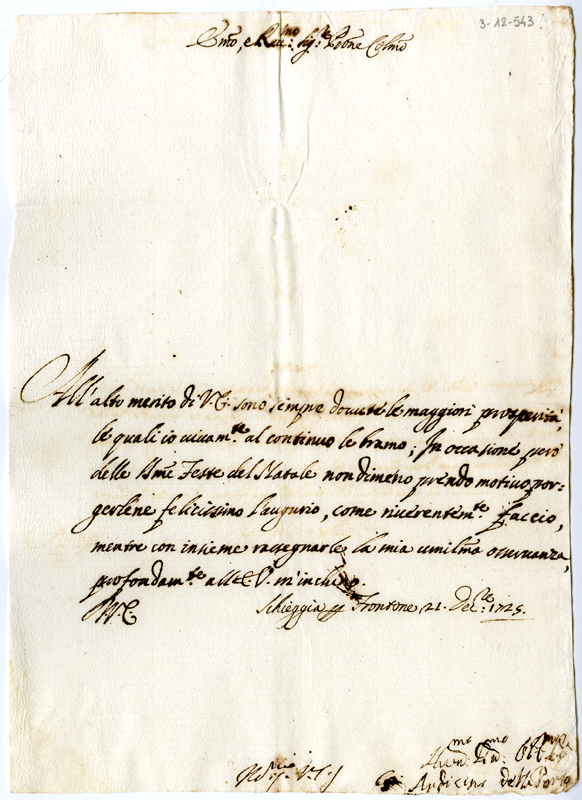 3-12-543
Em̃o, e Reu:mo Sig:re Pr̃one Col̃mo
All'alto merito di V.E. sono sempre douute le maggiori prosperità,
le quali io viuam:te al continuo le bramo; In occasione però
delle SS̃me Feste del Natale nondimeno prendo motiuo por-
gerlene felicissimo l'augurio, come riuerentem:te faccio,
mentre con insieme rassegnarle la mia umil̃ma osseruanza,
profondam:te all'E.V. m'inchino.
D.V.E. Schieggia p Frontone 21. Dec:re 1725.
Hum:mo Diu:mo
della Porta